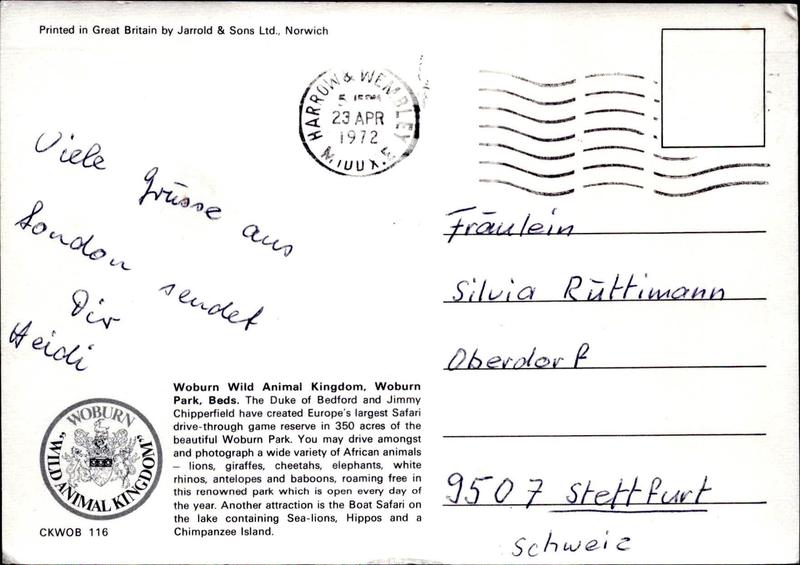 Printed in Great Britain by Jarrold & Sons Ltd., Norwich
HARROW & WEMBLEY
23 APR
1972
Viele Grüsse aus
London sendet
Dir
Heidi
Fräulein
Silvia Rüttimann
Oberdorf
9507 Stettfurt
Schweiz
Woburn Wild Animal Kingdom, Woburn
Park, Beds. The Duke of Bedford and Jimmy
Chipperfield have created Europe's largest Safari
drive-through game reserve in 350 acres of the
beautiful Woburn Park. You may drive amongst
and photograph a wide variety of African animals
– lions, giraffes, cheetahs, elephants, white
rhinos, antelopes and baboons, roaming free in
this renowned park which is open every day of
the year. Another attraction is the Boat Safari on
the lake containing Sea-lions, Hippos and a
Chimpanzee Island.
WOBURN
"WILD ANIMAL KINGDOM"
CKWOB 116